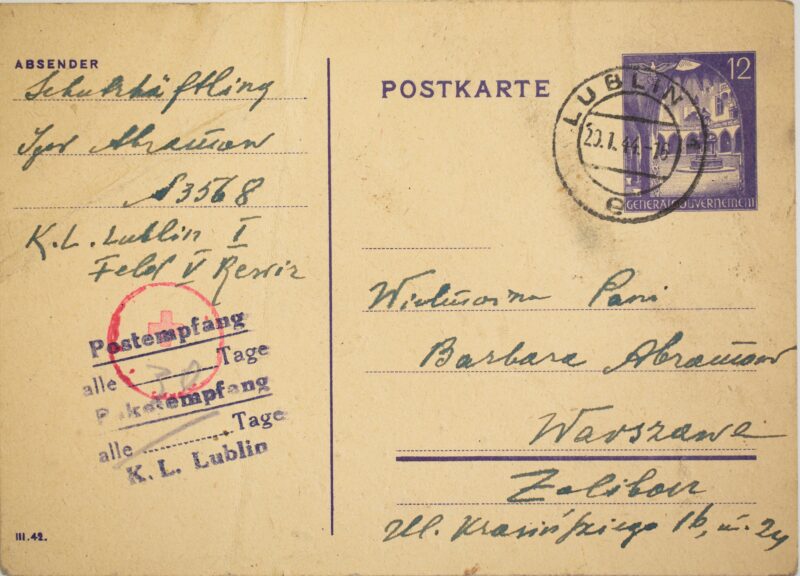 ABSENDER
Schutzhäftling
Igor Abramow
№ 3568
K. L. Lublin I
Feld V Rewir
Postempfang
alle 30 Tage
Paketempfang
alle Tage
K. L. Lublin
III.42.
POSTKARTE
12
GENERALGOUVERNEMENT
LUBLIN
20.1.44.-16
e
Wielmożna Pani
Barbara Abramow
Warszawa
Żoliborz
Ul. Krasińskiego 16, m. 24